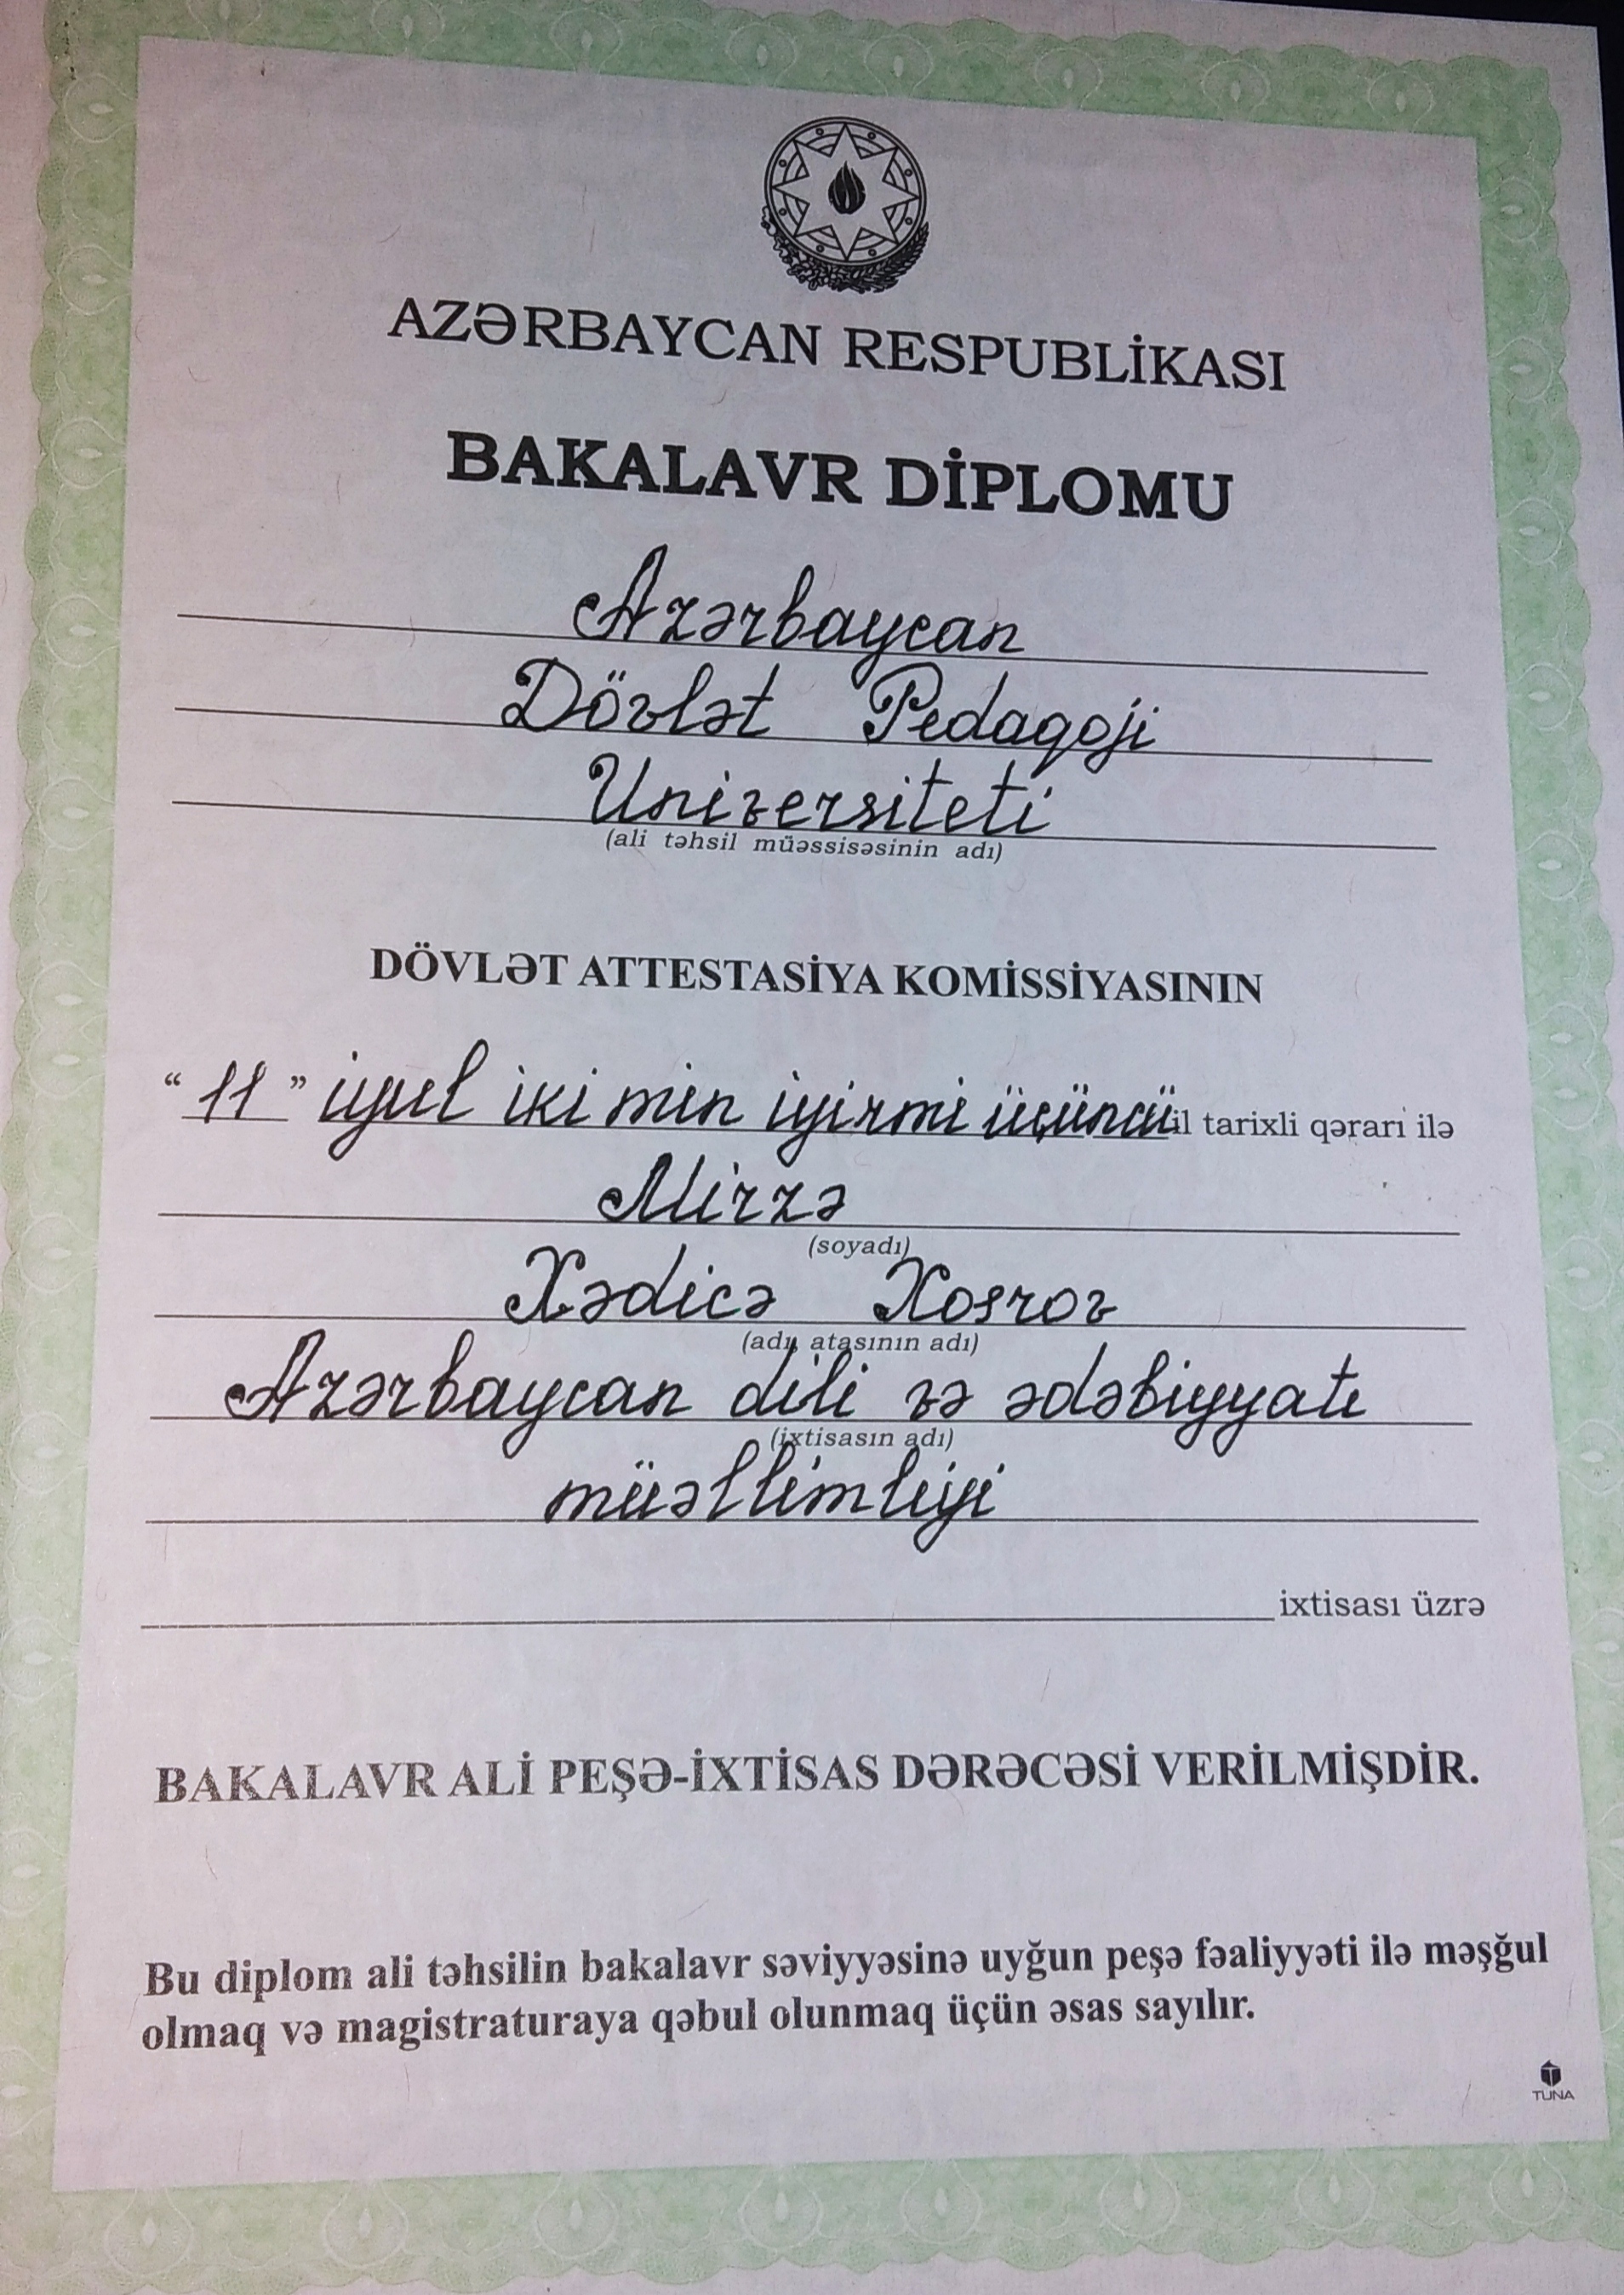 AZƏRBAYCAN RESPUBLİKASI
BAKALAVR DİPLOMU
Azərbaycan
Dövlət Pedaqoji
Universiteti
(ali təhsil müəssisəsinin adı)
DÖVLƏT ATTESTASİYA KOMİSSİYASININ
“ 11 ” iyul iki min iyirmi üçüncü il tarixli qərarı ilə
Mirzə
(soyadı)
Xədicə Xosrov
(adı, atasının adı)
Azərbaycan dili və ədəbiyyatı
(ixtisasın adı)
müəllimliyi
ixtisası üzrə
BAKALAVR ALİ PEŞƏ-İXTİSAS DƏRƏCƏSİ VERİLMİŞDİR.
Bu diplom ali təhsilin bakalavr səviyyəsinə uyğun peşə fəaliyyəti ilə məşğul
olmaq və magistraturaya qəbul olunmaq üçün əsas sayılır.
TUNA